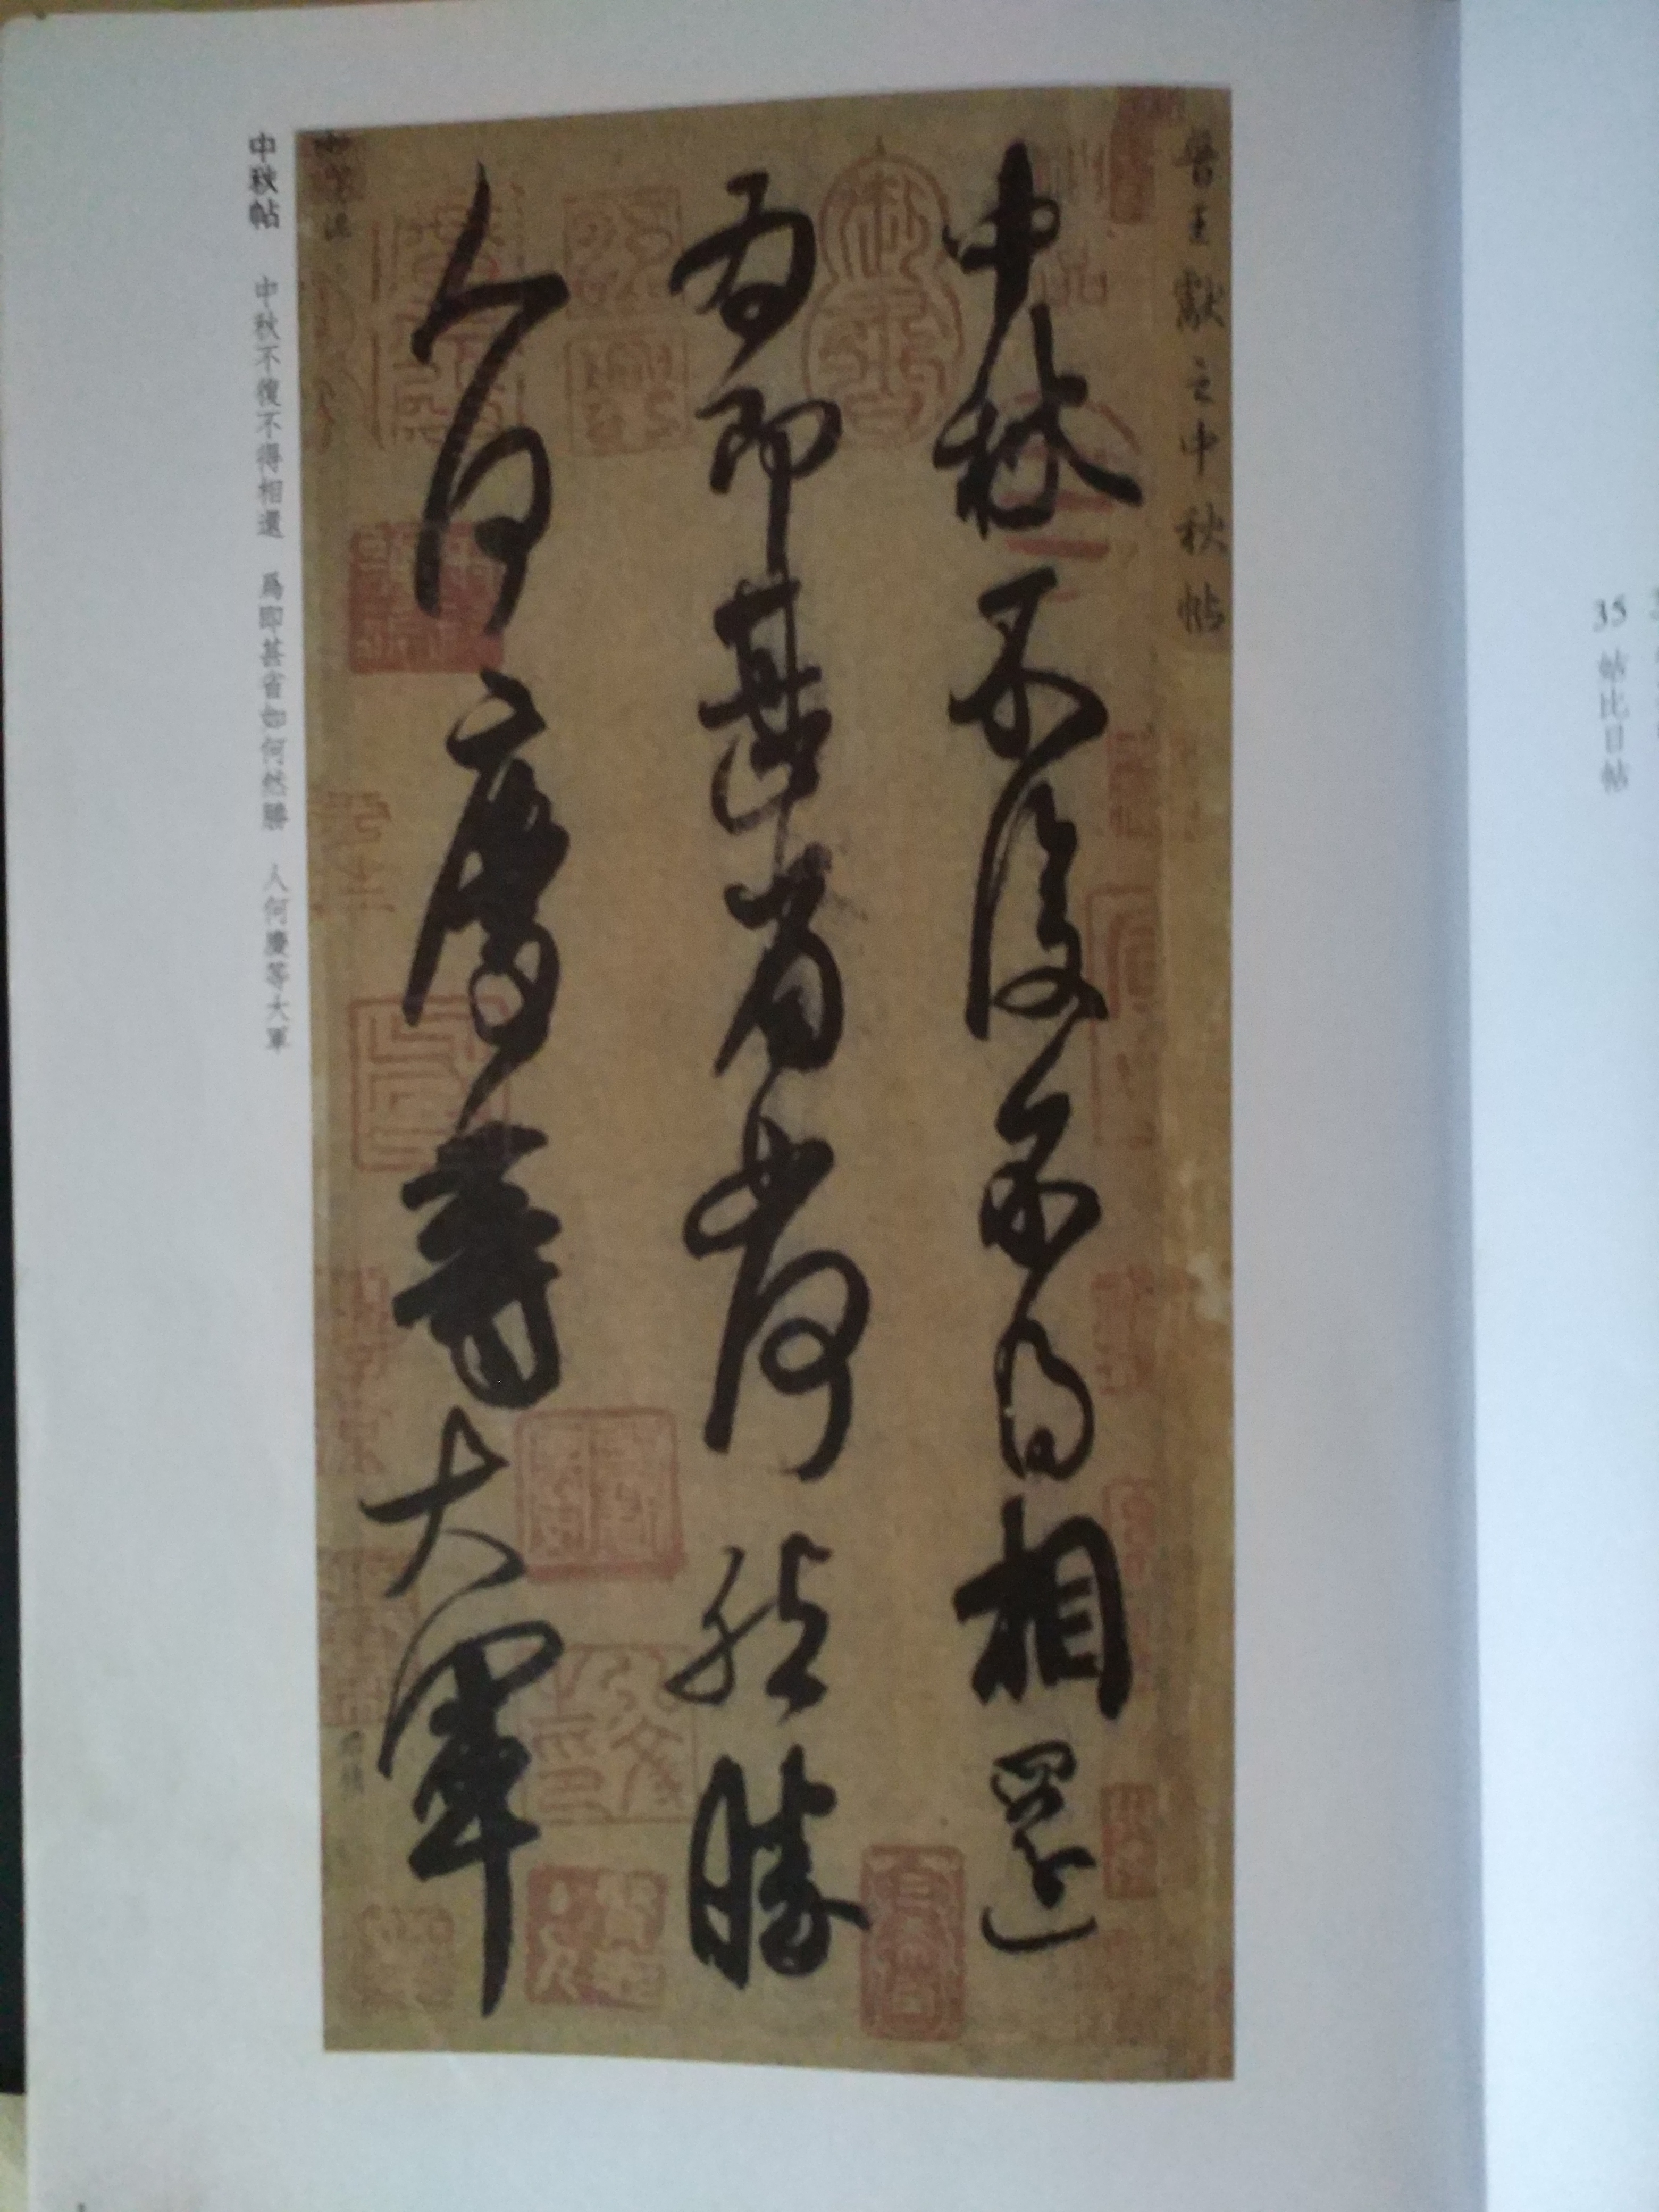 35 帖比日帖
晉王獻之中秋帖
中秋不復不得相還
為即甚省如何然勝
人何慶等大軍
中秋帖 中秋不復不得相還 爲即甚省如何然勝 人何慶等大軍